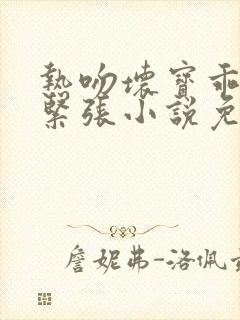 熱吻壞寶乖
緊張小說免
詹妮弗-洛佩茲